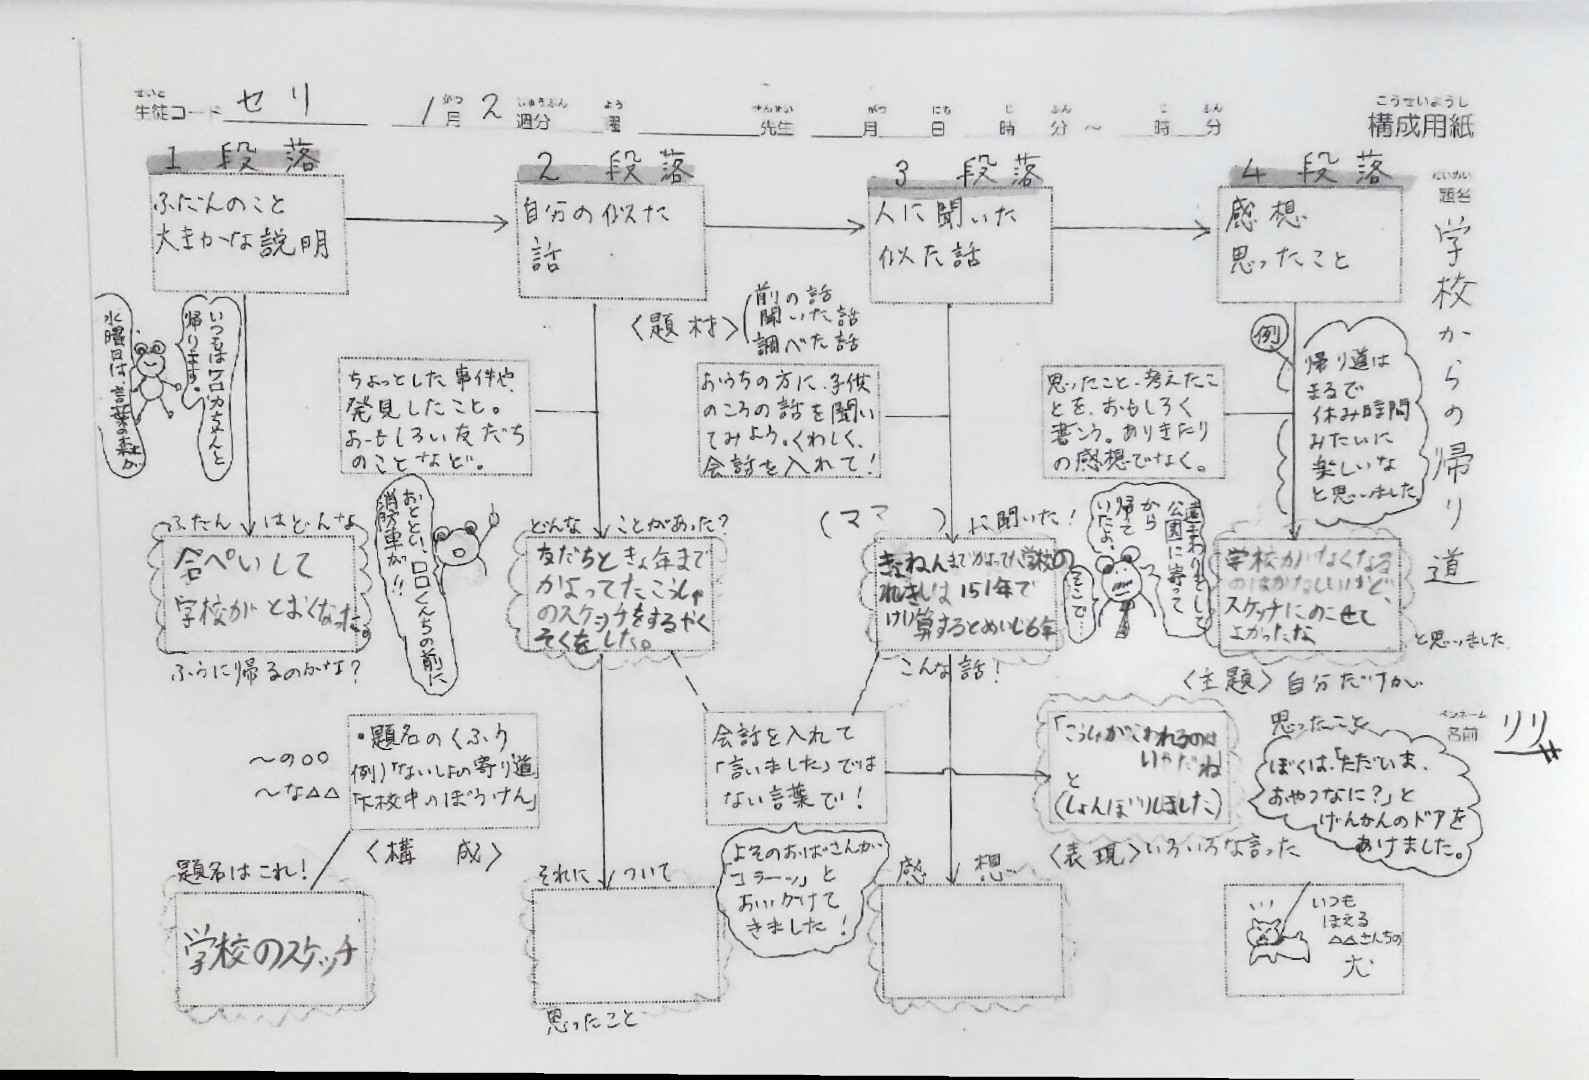 せいと
生徒コード セリ
1 がつ 月 2 しゅうぶん 週分 よう 曜 せんせい 先生 がつ 月 にち 日 じ 時 ふん 分 ～ じ 時 ふん 分
こうせいようし
構成用紙
だいめい
題名
学校からの帰り道
1 段落
ふだんのこと
大まかな説明
2 段落
自分の似た
話
3 段落
人に聞いた
似た話
4 段落
感想
思ったこと
いつもは
帰ります。
水曜日は、言葉の森が
ちょっとした事件や、
発見したこと。
おもしろい友だち
のことなど。
〈題材〉
前の話
聞いた話
調べた話
おうちの方に、子供
のころの話を聞い
てみよう。くわしく、
会話を入れて！
思ったこと、考えたこ
とを、おもしろく
書こう。ありきたり
の感想でなく。
例
帰り道は
まるで
休み時間
みたいに
楽しいな
と思いました。
ふだん はどんな
合ぺいして
学校がとおくなった。
ふうに帰るのかな？
おととい、ロロくんちの前に
消防車が!!
どんな ことがあった？
友だちときょ年まで
かよってたこうしゃ
のスケッチをするやく
そくをした。
（ママ ）に聞いた！
きょねんまでかよってた学校の
れきしは151年で
けい算するとめいじ6年
こんな話！
遠まわりをして
公園に寄って
から
帰て
いたよ。
そこで…
学校がなくなる
のはかなしいけど、
スケッチにのこせて
よかったな
と思いました
〈主題〉自分だけが
思ったこと
ペンネーム
名前 リリ
・題名のくふう
例）「ないしょの寄り道」
「下校中のぼうけん」
～の○○
～な△△
〈構 成〉
会話を入れて
「言いました」では
ない言葉で！
「こうしゃがこわれるのは
いやだね
と
（しょんぼりしました）
〈表現〉いろいろな言った
ぼくは、「ただいま、
おやつなに？」と
げんかんのドアを
あけました。
よそのおばさんが
「コラーッ」と
おいかけて
きました！
題名はこれ！
学校のスケッチ
それに ついて
思ったこと
感 想
いつも
ほえる
△△さんちの
犬